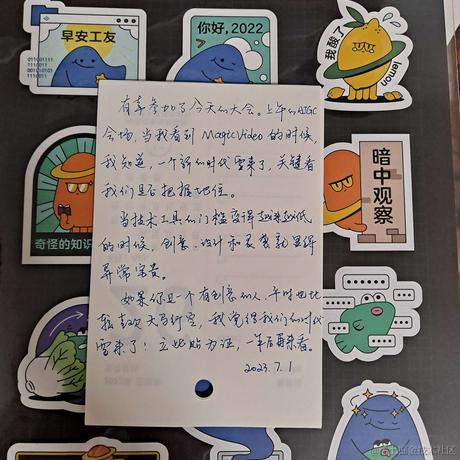 早安工友
你好,2022
我酸了
lemon
奇怪的知识
暗中观察
有幸参加了今天的大会。上午的AIGC
会场,当我看到 MagicVideo 的时候,
我知道,一个新的时代要来了,关键看
我们是否把握地位。
当技术工具的门槛变得越来越低
的时候,创意、设计和灵感就显得
异常宝贵。
如果你是一个有创意的人,平时也比
较喜欢天马行空,我觉得我们的时代
要来了!立此贴为证,一年后再来看。
2023.7.1